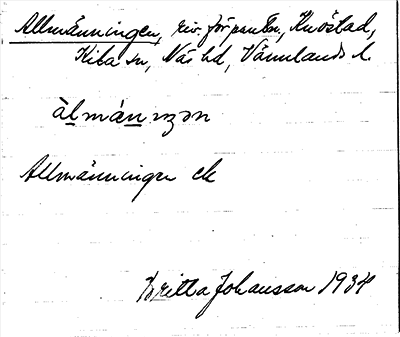 Allmänningen, riv. förpantn., Knöstad,
Kila sn, Näs hd, Värmlands l.
àlmánɪŋən
Allmänningen ck
Britta Johansson 1934